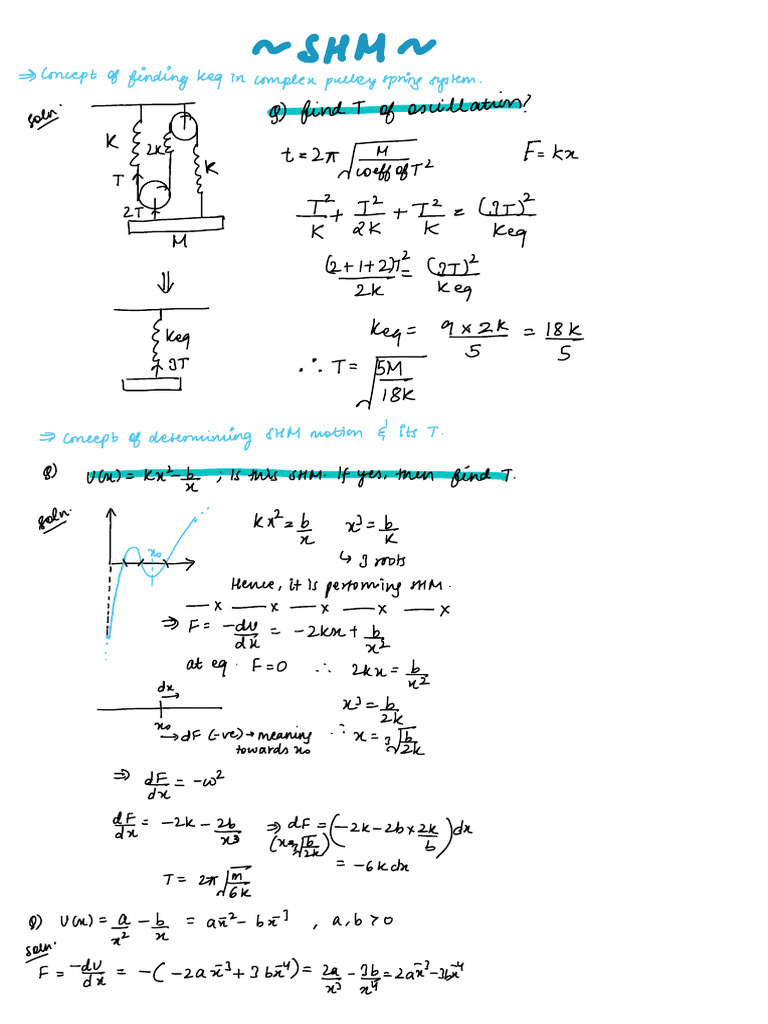 ~SHM~
⇒ Concept of finding keq in complex pulley spring system.
soln:
Q) find T of oscillation?
K
2K
K
T
2T
M
t = 2π √(M / coeff of T²)
F = kx
T²/K + T²/2K + T²/K = (3T)²/Keq
(2+1+2)T²/2K = (3T)²/Keq
⇓
Keq
3T
Keq = 9 × 2K/5 = 18K/5
∴ T = √(5M/18K)
⇒ Concept of determining SHM motion & its T.
Q) U(x) = Kx² - b/x ; Is this SHM. If yes, then find T.
soln.
x₀
Kx² = b/x
x³ = b/K
↳ 3 roots
Hence, it is performing SHM.
— x — x — x — x — x
⇒ F = -dU/dx = -2Kx + b/x²
at eq. F = 0 ∴ 2Kx = b/x²
dx
x₀
→ dF (-ve) → meaning towards x₀
x³ = b/2K
∴ x = ³√(b/2K)
⇒ dF/dx = -ω²
dF/dx = -2K - 2b/x³
⇒ dF = (-2K - 2b × 2K/b) dx
(x = ³√(b/2K))
= -6K dx
T = 2π √(m/6K)
Q) U(x) = a/x² - b/x = ax⁻² - bx⁻³ , a, b > 0
soln.
F = -dU/dx = -(-2ax⁻³ + 3bx⁻⁴) = 2a/x³ - 3b/x⁴ = 2ax⁻³ - 3bx⁻⁴